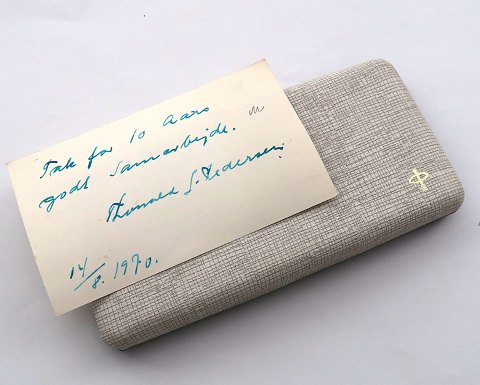 Tak for 10 Aars
godt Samarbejde.
Thorvald S. Pedersen.
14/8. 1970.